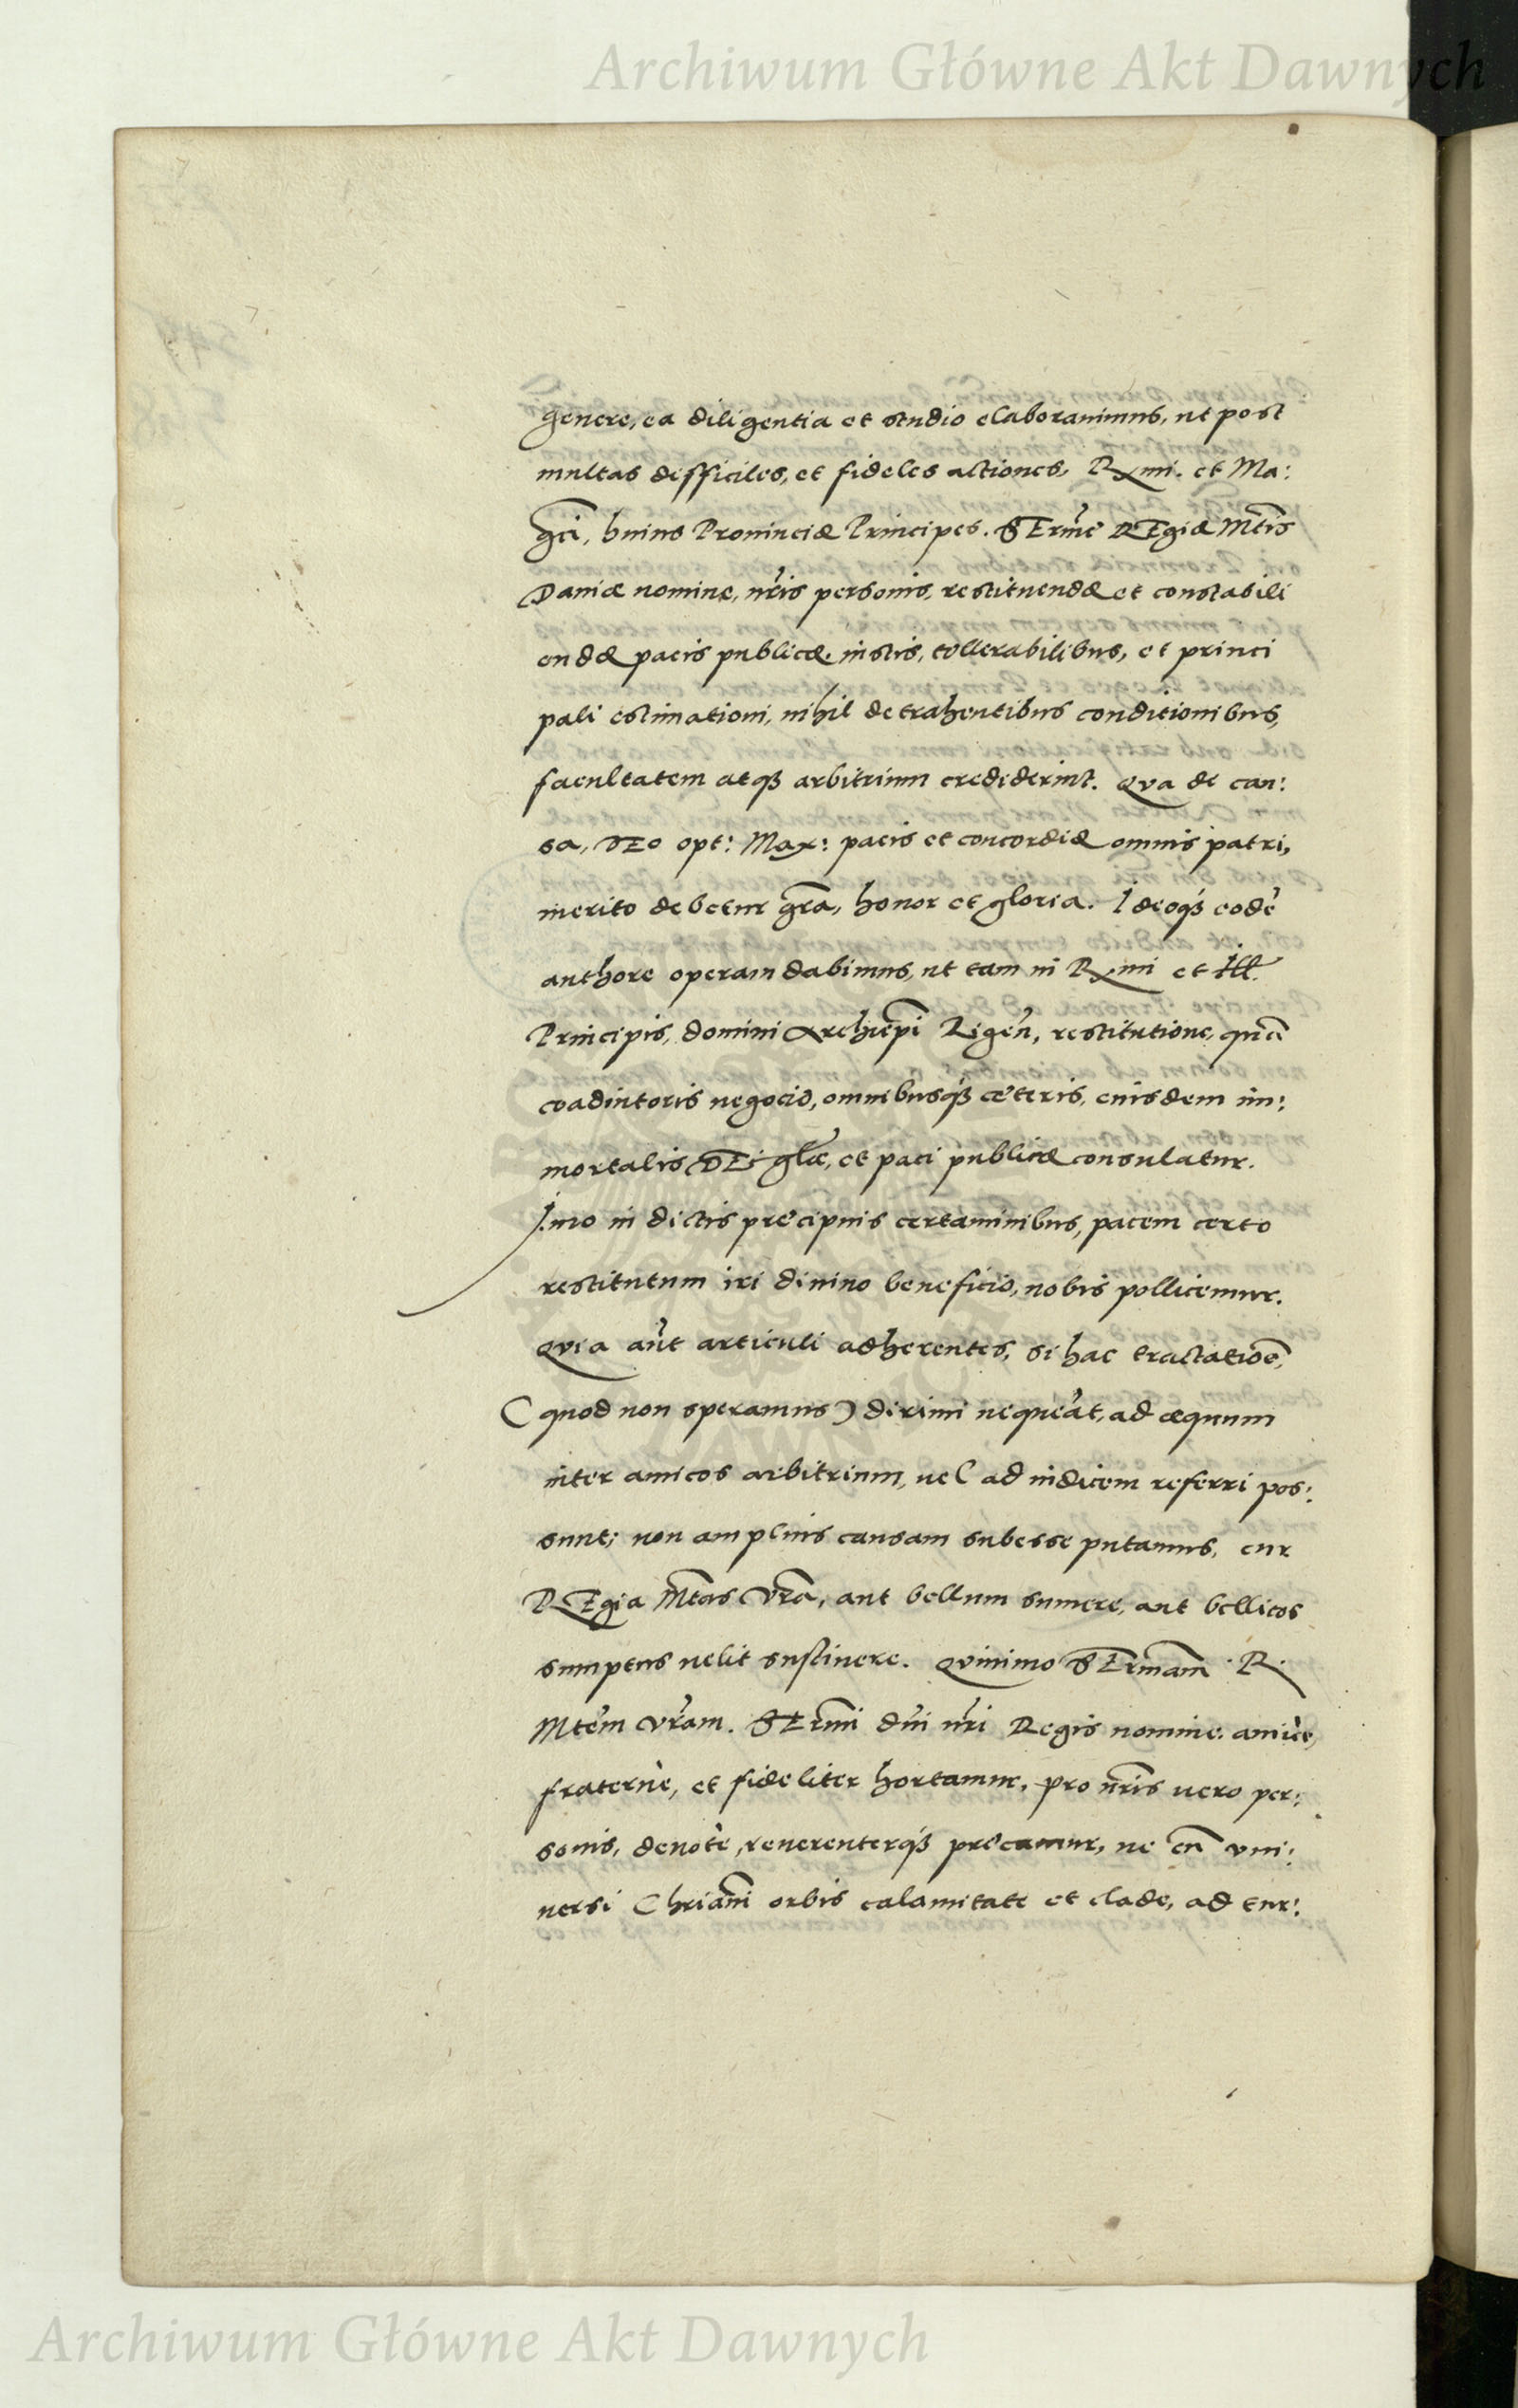 Archiwum Główne Akt Dawnych
genere, ea diligentia et studio elaborauimus, ut post
multas difficiles, et fideles actiones, Rxmi. et Ma:
gci, huius Prouinciæ Principes. SErmẽ REgiæ Mtis
Daniæ nomine, nris personis, restituendæ et constabili
endæ pacis publicæ. iustis, tollerabilibus, et princi
pali estimationi, nihil detrahentibus conditionibus,
facultatem atqȝ arbitrium crediderint. Qua de cau:
sa, DEo opt: Max: pacis et concordiæ omnis patri,
merito debetur gra, honor et gloria. Ideoqȝ eodẽ
authore operam dabimus, ut tam in Rxmi et Ill.
Principis, domini Archiepi Rigen, restitutione, quã
coadiutoris negocio, omnibusqȝ cæteris, eiusdem im:
mortalis DEi glæ, et paci publicæ consulatur.
Imo in dictis precipuis certaminibus, pacem certo
restitutum iri diuino beneficio, nobis pollicemur.
Quia aut articuli adherentes, si hac tractatiõe,
(quod non speramus) dirimi nequeãt, ad æquum
inter amicos arbitrium, uel ad iudicem referri pos:
sunt; non amplius causam subesse putamus, cur
REgia Mtas Vra, aut bellum sumere, aut bellicos
sumptus uelit sustinere. Quinimo SErmam R.
Mtem Vram. SErmi dni nri Regis nomine. amicè,
fraternè, et fideliter hortamur, pro nris uero per:
sonis, deuotè, reuerenterqȝ precamur, ne cũ vni:
uersi Chriani orbis calamitate et clade, ad tur:
Archiwum Główne Akt Dawnych